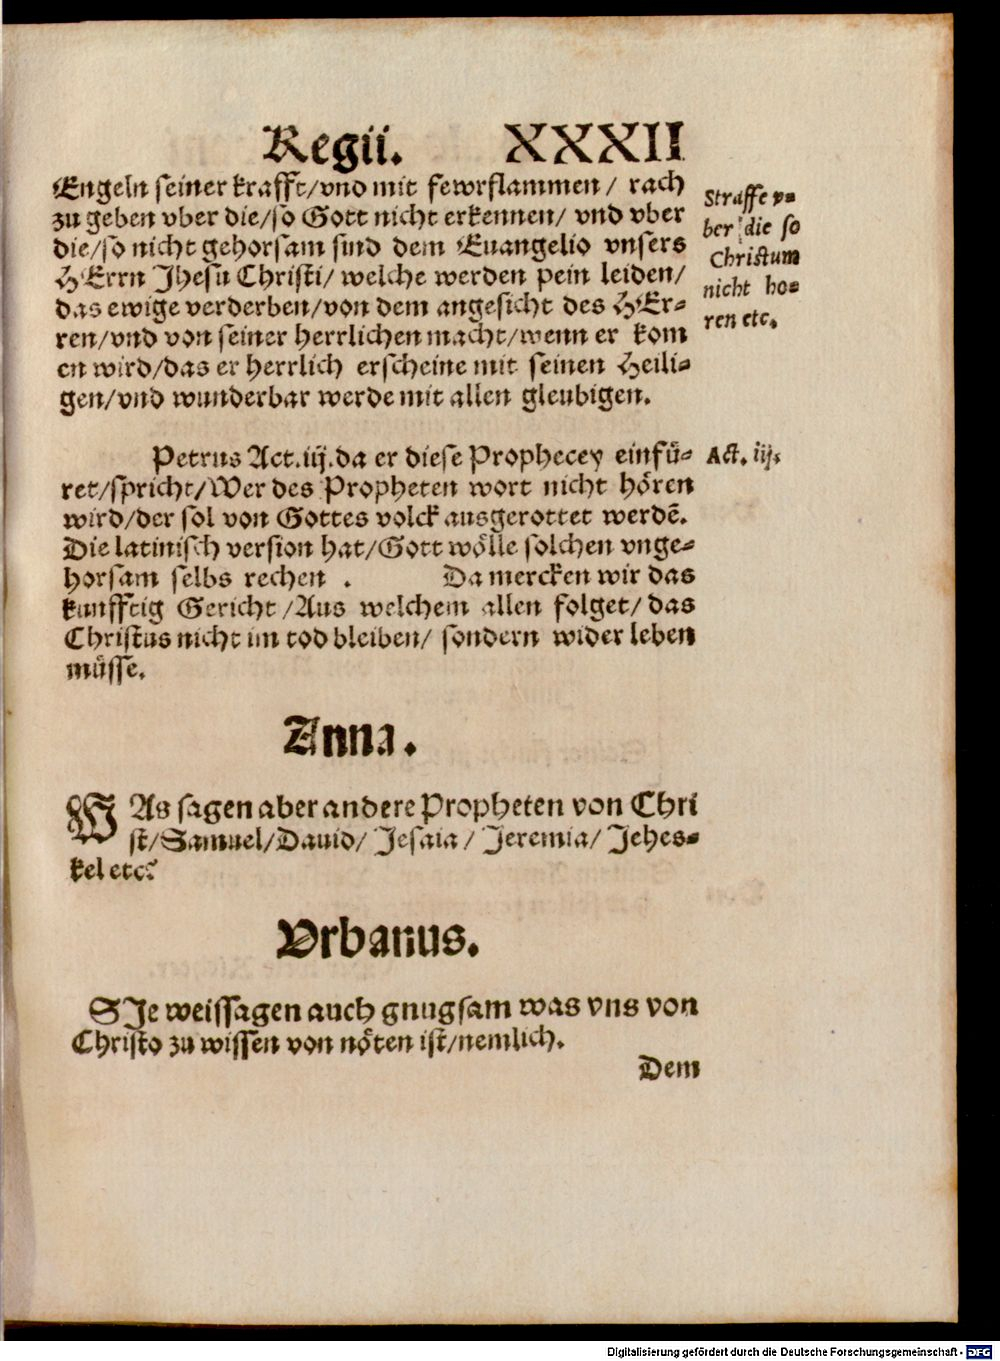 Regii. XXXII
Engeln seiner krafft/vnd mit fewrflammen / rach
zu geben vber die/so Gott nicht erkennen/ vnd vber
die/so nicht gehorsam sind dem Euangelio vnsers
HErrn Jhesu Christi/ welche werden pein leiden/
das ewige verderben/von dem angesicht des HEr-
ren/vnd von seiner herrlichen macht/wenn er kom
en wird/das er herrlich erscheine mit seinen Heili-
gen/vnd wunderbar werde mit allen gleubigen.
Straffe v-
ber die so
Christum
nicht ho-
ren etc.
Petrus Act.iij.da er diese Prophecey einfü-
ret/spricht/Wer des Propheten wort nicht hören
wird/der sol von Gottes volck ausgerottet werdē.
Die latinisch version hat/Gott wölle solchen vnge-
horsam selbs rechen . Da mercken wir das
kunfftig Gericht /Aus welchem allen folget/ das
Christus nicht im tod bleiben/ sondern wider leben
müsse.
Act. iij.
Anna.
WAs sagen aber andere Propheten von Chri
st/Samuel/Dauid/ Jesaia / Jeremia/ Jehes-
kel etc?
Vrbanus.
SJe weissagen auch gnugsam was vns von
Christo zu wissen von nöten ist/nemlich.
Dem
Digitalisierung gefördert durch die Deutsche Forschungsgemeinschaft - DFG